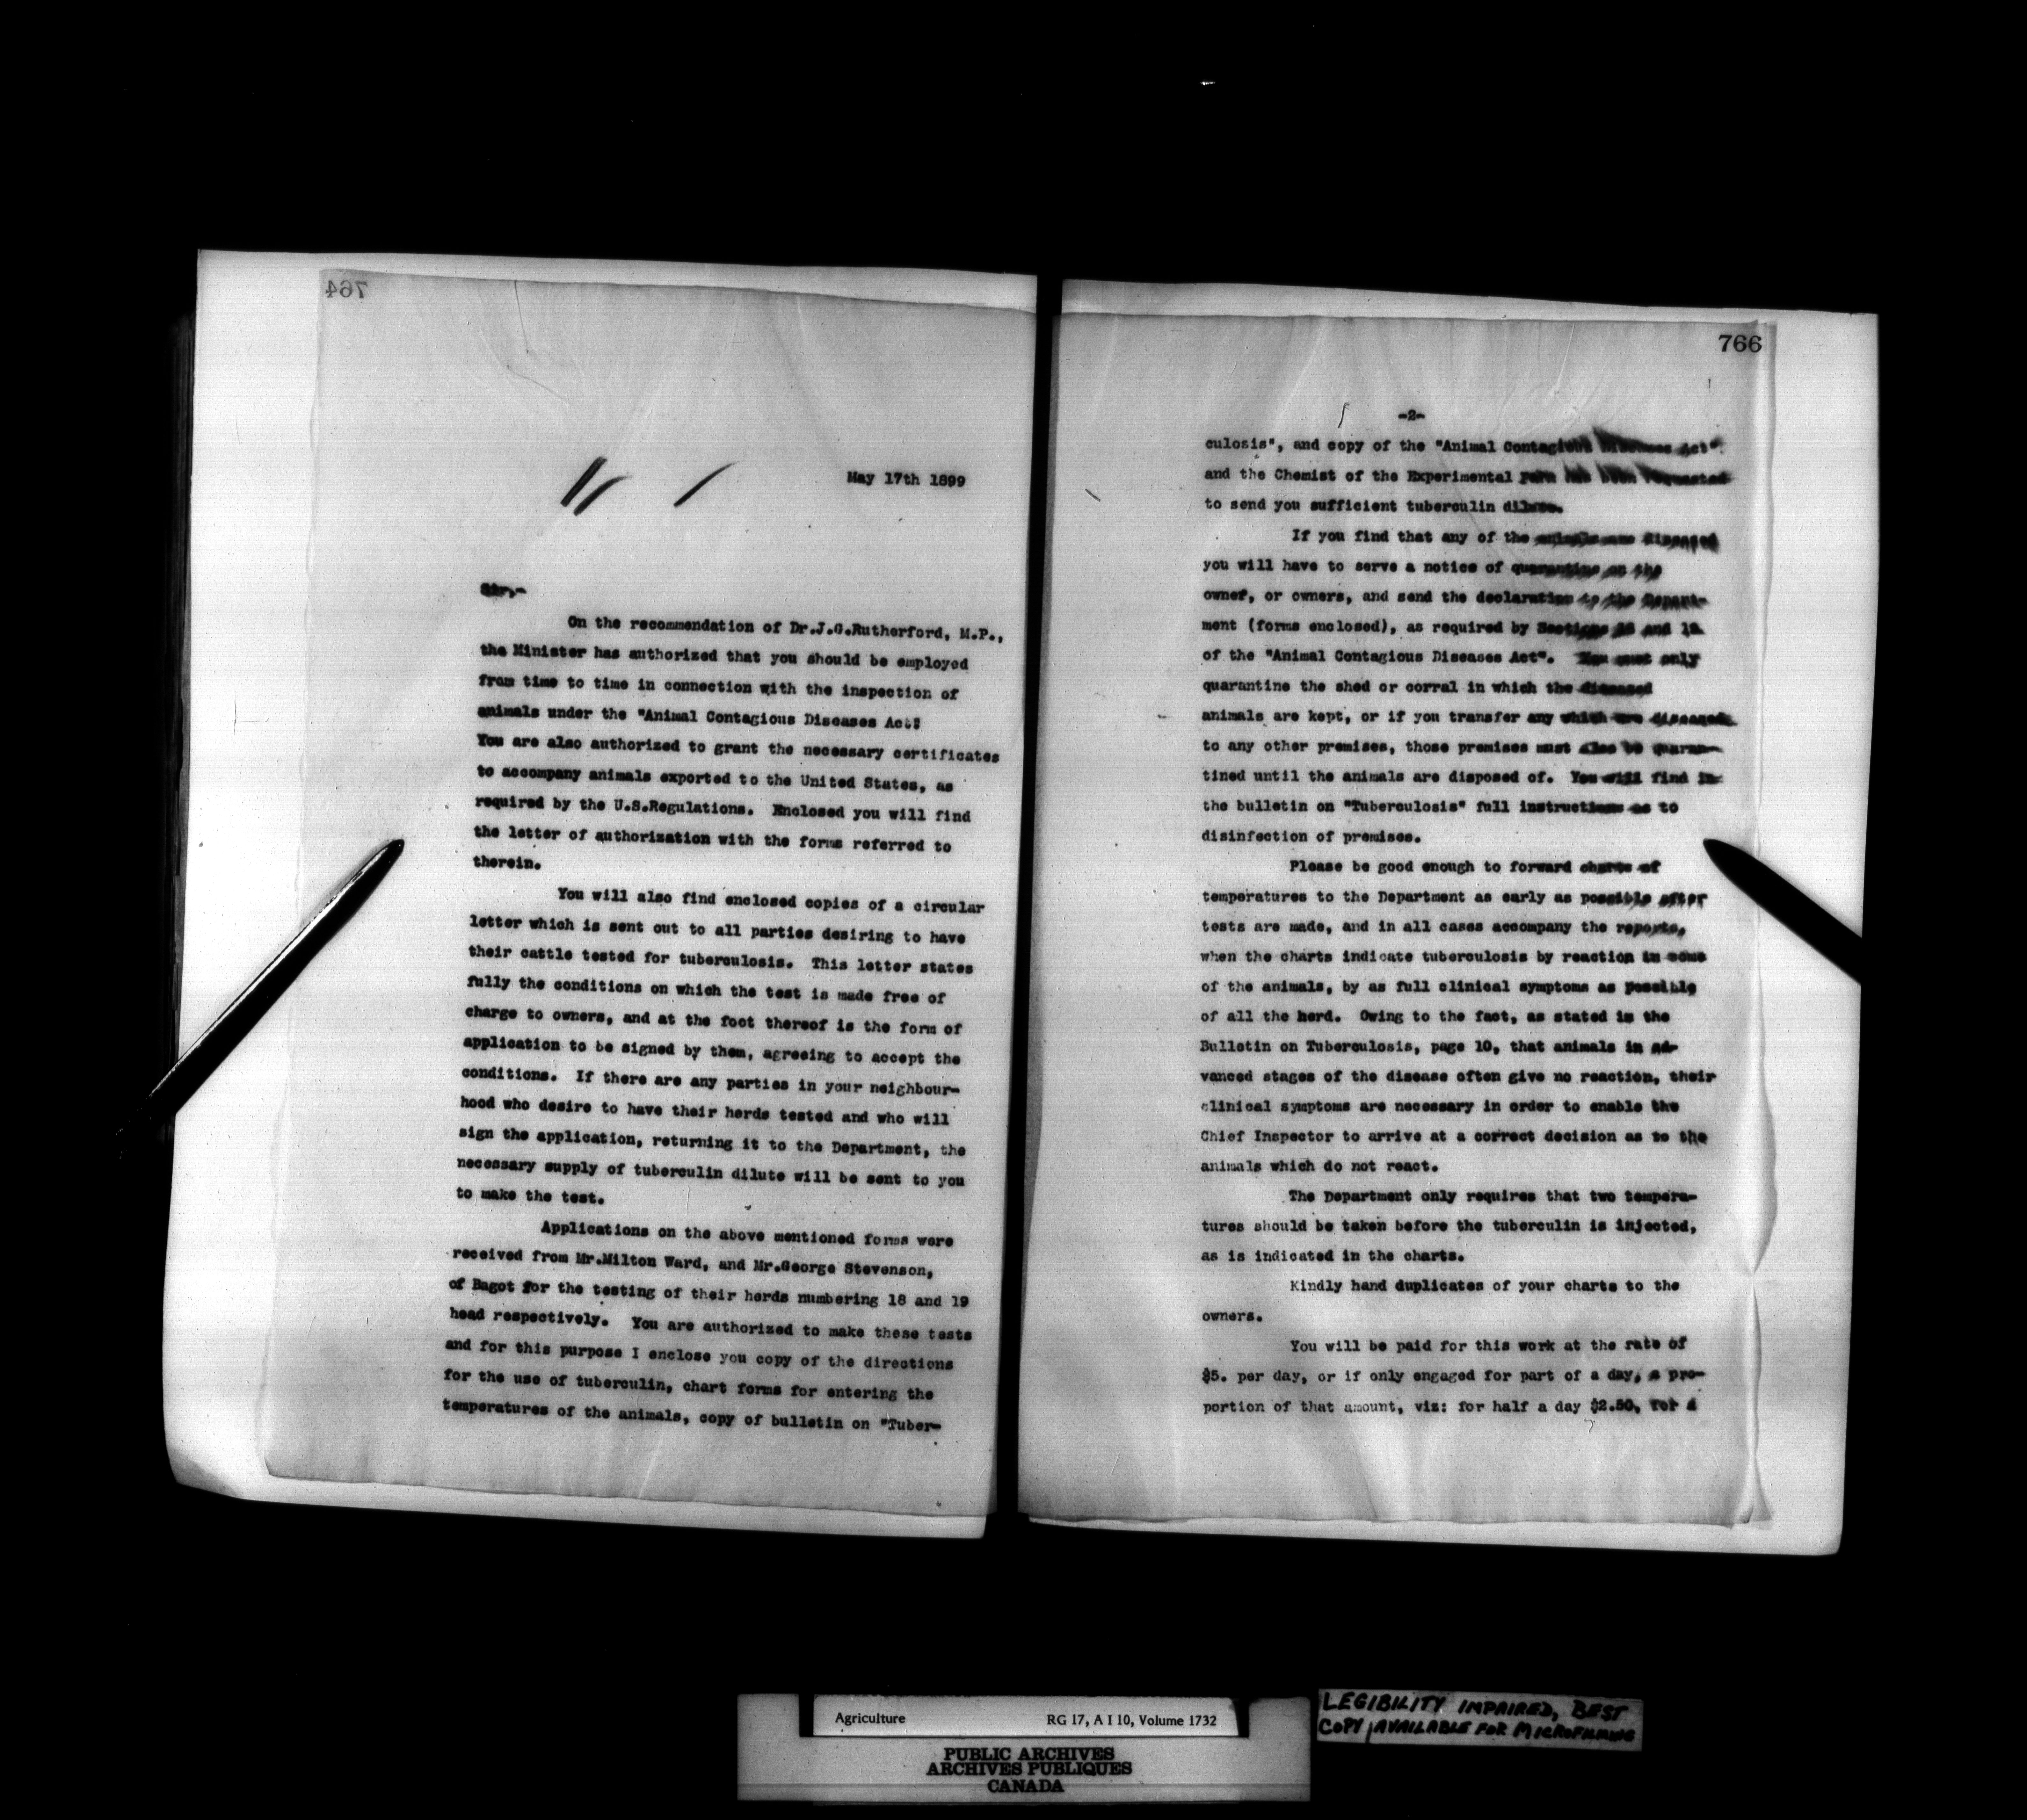 764
May 17th 1899
Sir,-
On the recommendation of Dr.J.G.Rutherford, M.P.,
the Minister has authorized that you should be employed
from time to time in connection with the inspection of
animals under the "Animal Contagious Diseases Act"
You are also authorized to grant the necessary certificates
to accompany animals exported to the United States, as
required by the U.S.Regulations. Enclosed you will find
the letter of authorization with the forms referred to
therein.
You will also find enclosed copies of a circular
letter which is sent out to all parties desiring to have
their cattle tested for tuberculosis. This letter states
fully the conditions on which the test is made free of
charge to owners, and at the foot thereof is the form of
application to be signed by them, agreeing to accept the
conditions. If there are any parties in your neighbour-
hood who desire to have their herds tested and who will
sign the application, returning it to the Department, the
necessary supply of tuberculin dilute will be sent to you
to make the test.
Applications on the above mentioned forms were
received from Mr.Milton Ward, and Mr.George Stevenson,
of Bagot for the testing of their herds numbering 18 and 19
head respectively. You are authorized to make these tests
and for this purpose I enclose you copy of the directions
for the use of tuberculin, chart forms for entering the
temperatures of the animals, copy of bulletin on "Tuber-
766
-2-
culosis", and copy of the "Animal Contagious Diseases Act"
and the Chemist of the Experimental Farm has been requested
to send you sufficient tuberculin dilute.
If you find that any of the animals are diseased
you will have to serve a notice of quarantine on the
owner, or owners, and send the declaration to the Depart-
ment (forms enclosed), as required by Sections and
of the "Animal Contagious Diseases Act". You must only
quarantine the shed or corral in which the diseased
animals are kept, or if you transfer any which are diseased
to any other premises, those premises must also be quaran-
tined until the animals are disposed of. You will find in
the bulletin on "Tuberculosis" full instructions as to
disinfection of premises.
Please be good enough to forward charts of
temperatures to the Department as early as possible after
tests are made, and in all cases accompany the reports,
when the charts indicate tuberculosis by reaction in some
of the animals, by as full clinical symptoms as possible
of all the herd. Owing to the fact, as stated in the
Bulletin on Tuberculosis, page 10, that animals in ad-
vanced stages of the disease often give no reaction, their
clinical symptoms are necessary in order to enable the
Chief Inspector to arrive at a correct decision as to the
animals which do not react.
The Department only requires that two tempera-
tures should be taken before the tuberculin is injected,
as is indicated in the charts.
Kindly hand duplicates of your charts to the
owners.
You will be paid for this work at the rate of
$5. per day, or if only engaged for part of a day, a pro-
portion of that amount, viz: for half a day $2.50, for a
Agriculture RG 17, A I 10, Volume 1732
PUBLIC ARCHIVES
ARCHIVES PUBLIQUES
CANADA
LEGIBILITY IMPAIRED, BEST
COPY AVAILABLE FOR MICROFILMING